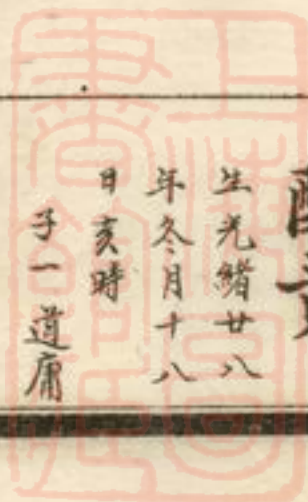 配
生光緒廿八
年冬月十八
日亥時
子一道庸